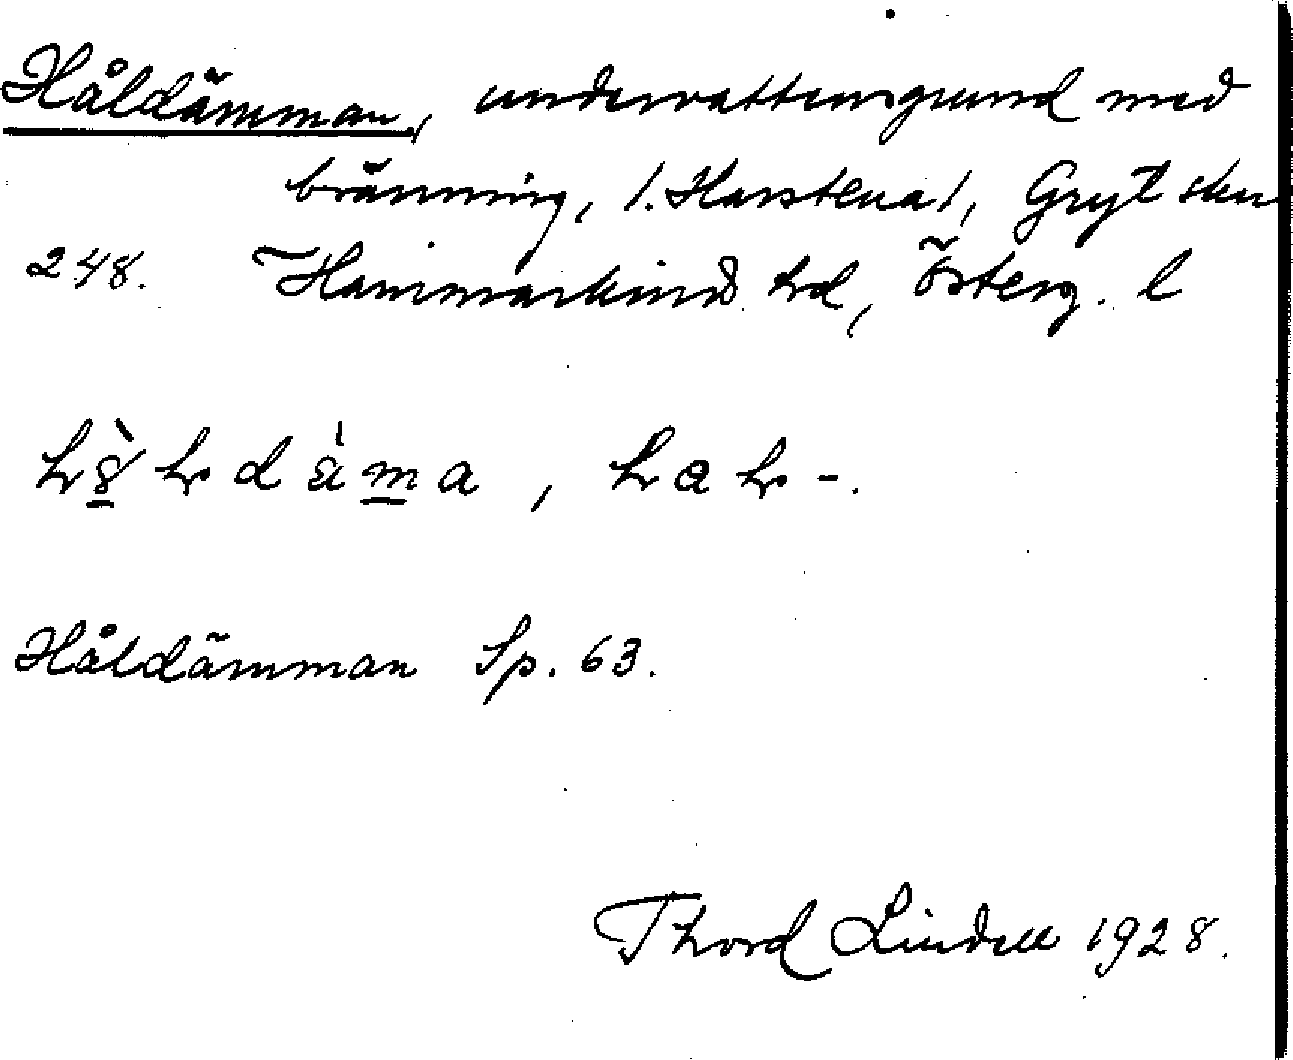 Håldämman, undervattensgrund med
bränning, /. Harstena/, Gryt skn
248. Hammarkind hd, Österg. l
Håldämman Sp. 63.
Thord Lindell 1928.